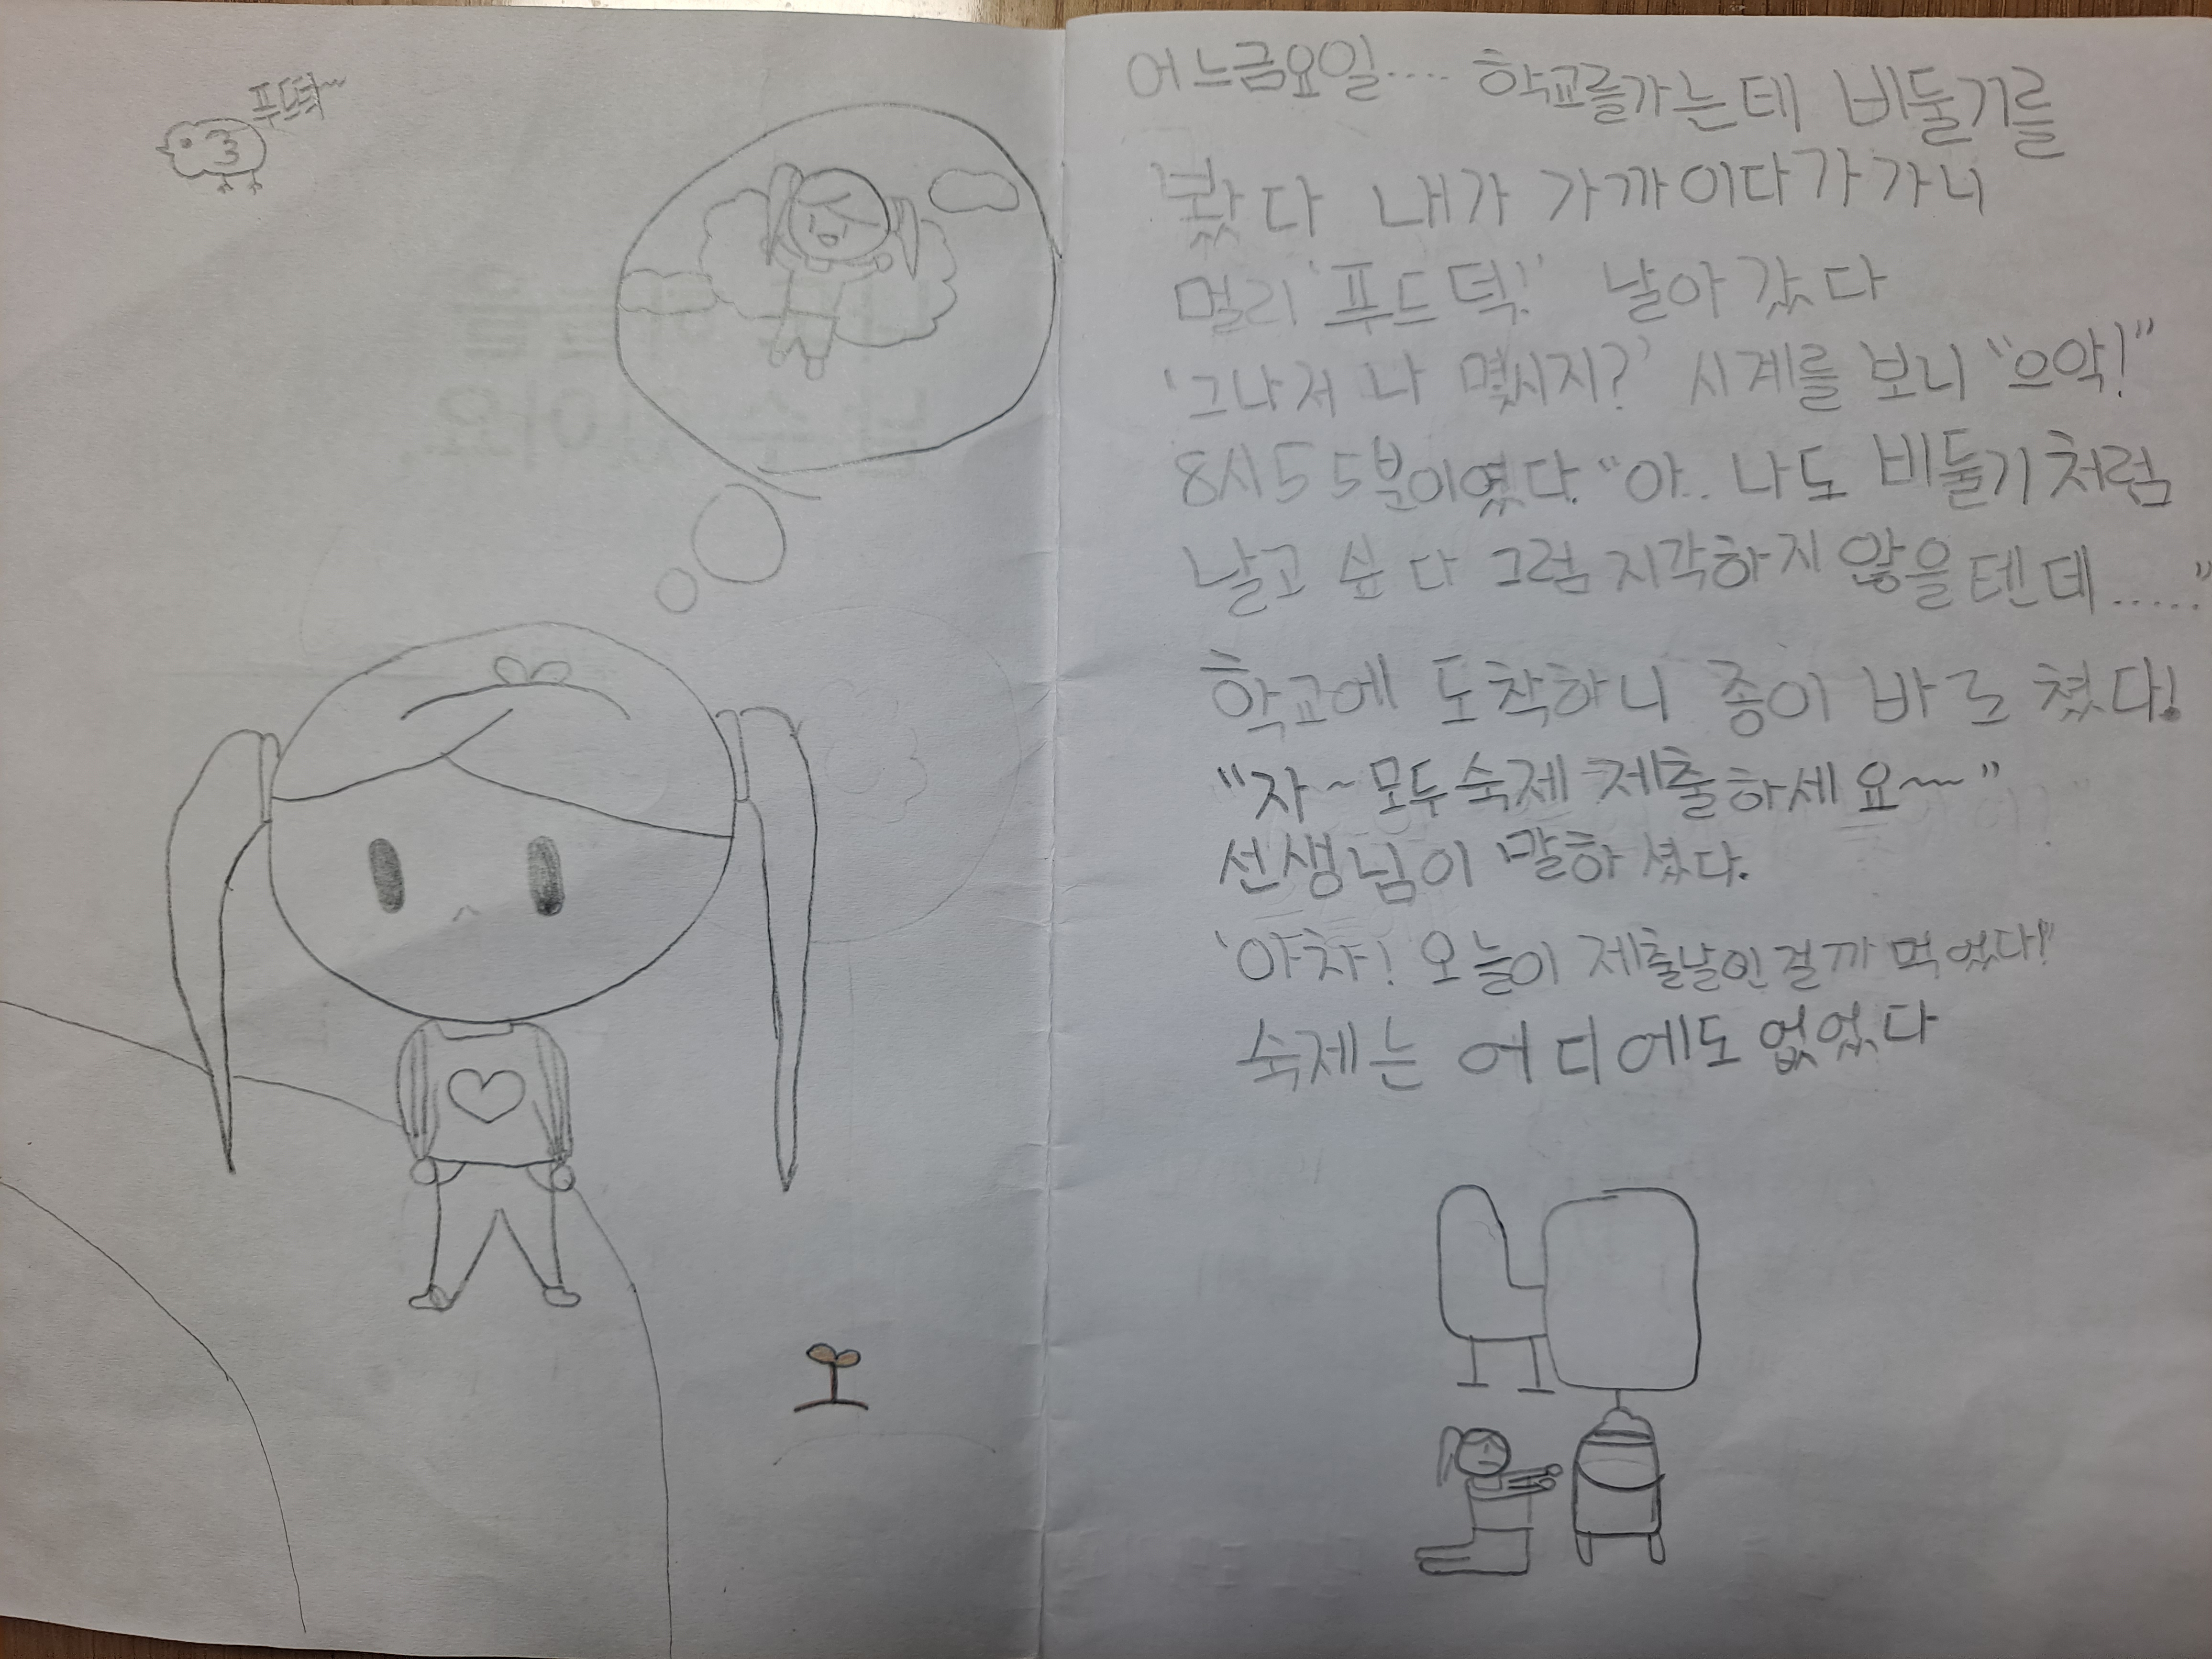 푸드덕~
어느금요일.... 학교를가는테 비둘기를
봤다 내가 가까이다가가니
멀리 '푸드덕!' 날아갔다
'그나저나 몇시지?' 시계를 보니 "으악!"
8시55분이였다. "아.. 나도 비둘기처럼
날고 싶다 그럼 지각하지 않을텐데....."
학교에 도착하니 종이 바로 쳤다!
"자~모두 숙제 제출하세요~"
선생님이 말하셨다.
'아차! 오늘이 제출날인걸 까먹었다!'
숙제는 어디에도 없었다